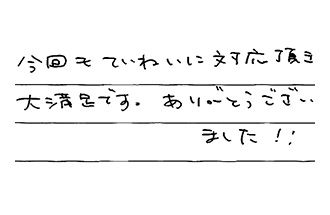 今回もていねいに対応頂き
大満足です。ありがとうござい
ました!!